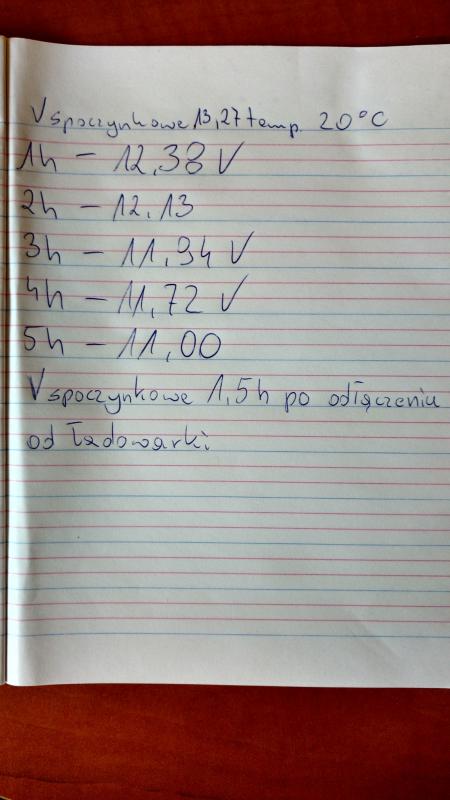 V spoczynkowe 13,27 temp. 20°C
1h - 12,38 V
2h - 12.13
3h - 11,94 V
4h - 11,72 V
5h - 11,00
V spoczynkowe 1,5h po odłączeniu
od ładowarki